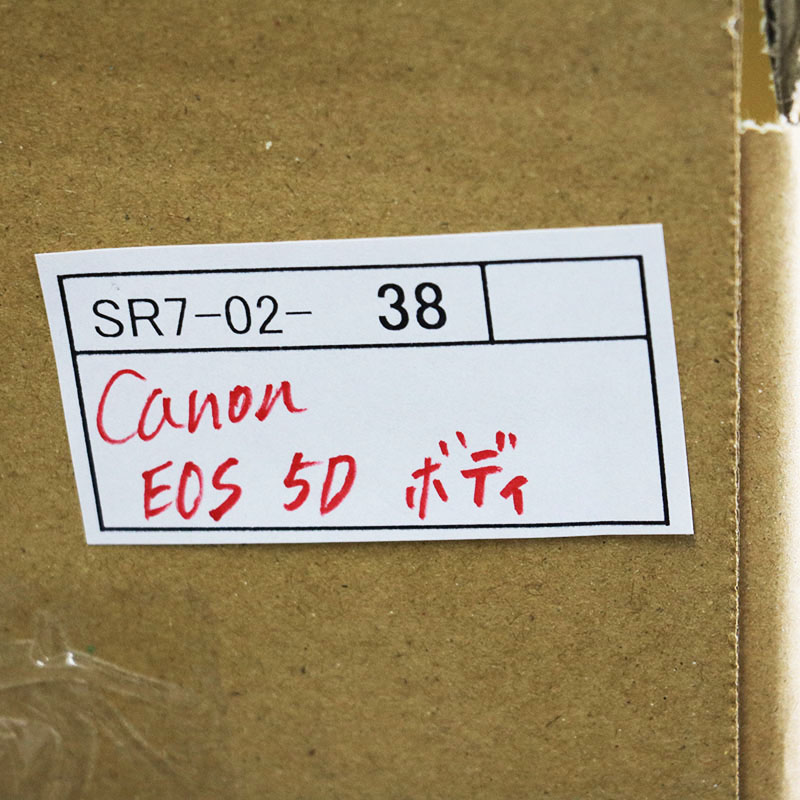 SR7-02- 38
Canon
EOS 5D ボディ